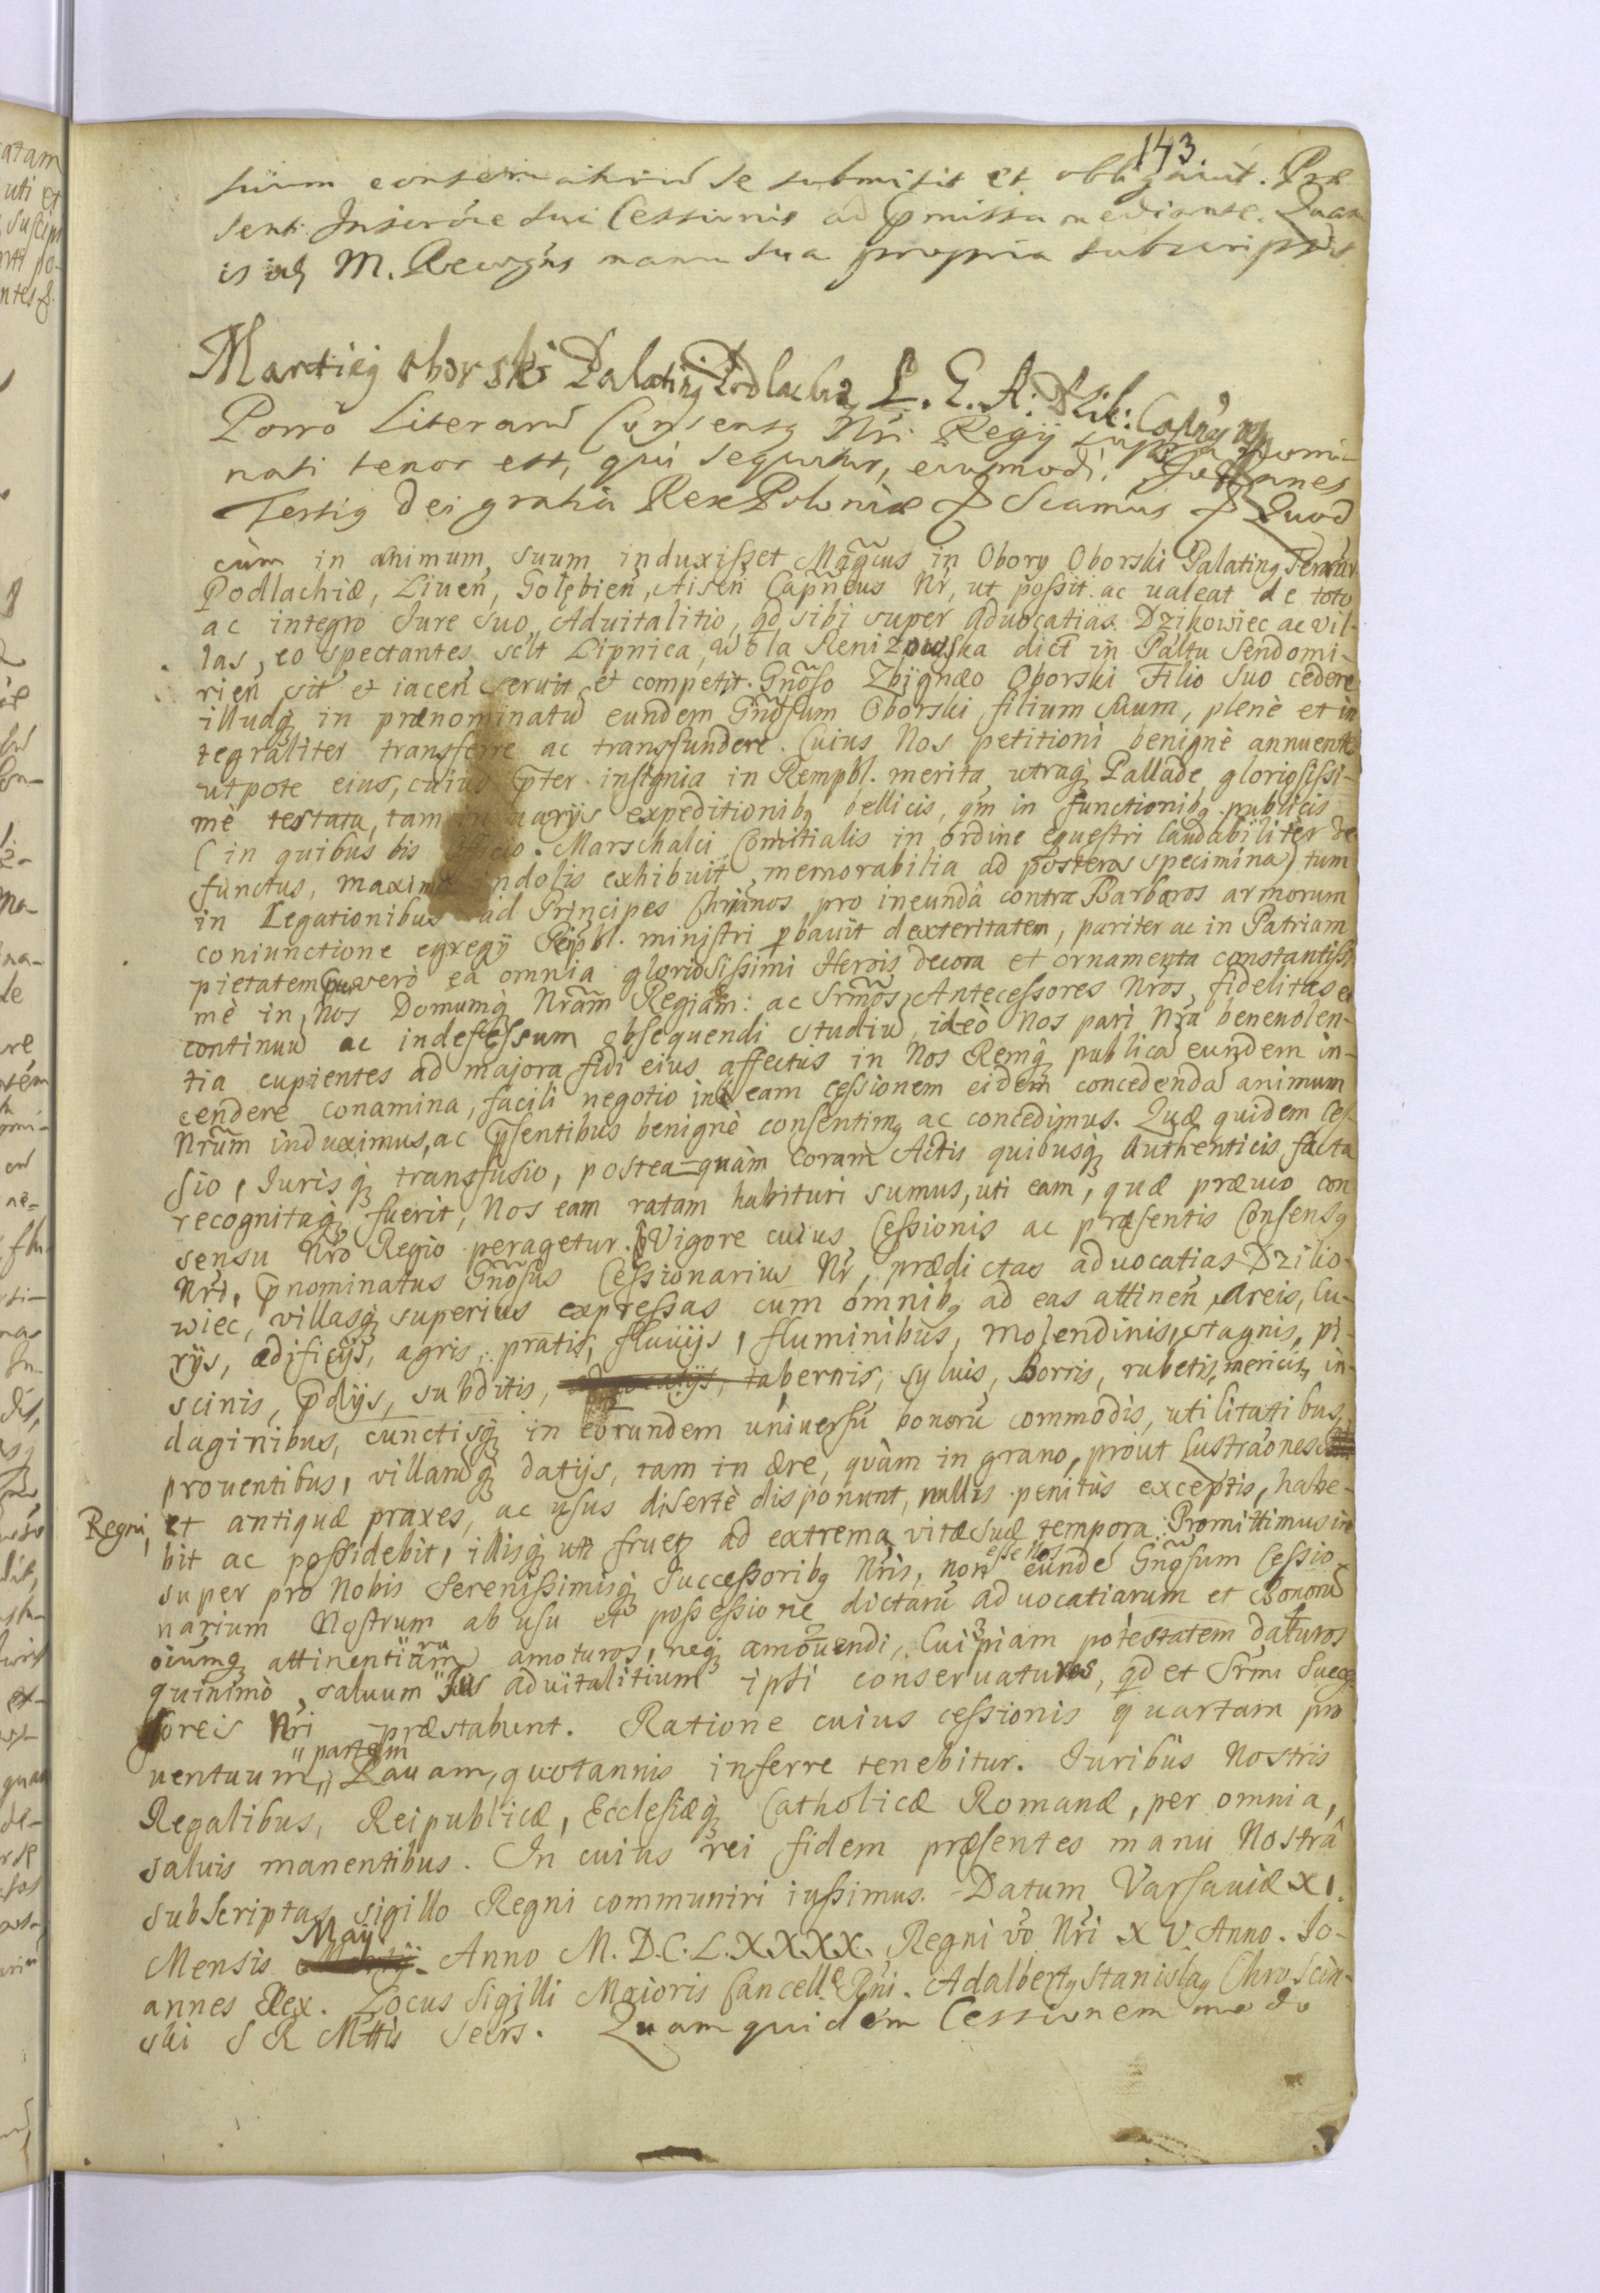 143.
suum conservaturum se submisit et obligavit. Præ
senti Inscr̃óne sui Cessionis ad p̃missa mediante. Quam
is idq M. Recogñs manu sua propria subscripsit.
Martiꝰ Oborski Palatinꝰ Podlachiæ L. G. A:
Porrò Literarũ Consensꝰ Nr̃i Regij supra nomi-
nati tenor est, qui sequitur, eiusmodi. Joannes
Tertiꝰ Dei gratia Rex Poloniæ & Scamus & Quod
cùm in animum suum induxisset Mag̃cus in Obory Oborski Palatinꝰ Terrar̃
Podlachiæ, Liueñ, Golębieñ, Aiseñ Capñeus Nr̃, ut possit ac ualeat de toto
ac integro Jure suo Aduitalitio, qd sibi super aduocatias Dzikowiec ac vil-
las, eo spectantes sclt Lipnica, Wola Renizowska dict in Pałtu Sendomi-
rień sit et iaceñ seruit et competit. Gnõso Zbignæo Oborski Filio suo cedere
illudq; in prænominatũ eundem Gnõsum Oborski filium suum, plenè et in
tegraliter transferre ac transfundere. Cuius Nos petitioni benignè annuente
utpote eius, cuius p̃ter insignia in Rempbl. merita utraq; Pallade gloriosissi-
mè testata, tam in uarijs expeditionibꝰ bellicis, qm in functionibꝰ publicis
(in quibus bis Marschalci Comitialis in ordine equestri laudabiliter de
functus, maximæ indolis exhibuit memorabilia ad posteros specimina) tum
in Legationibus ad Principes Chr̃inos pro ineundâ contra Barbaros armorum
coniunctione egregij Reipbl. ministri pbauit dexteritatem, pariter ac in Patriam
pietatem. Cum verò ea omnia gloriosissimi Herois decora et ornamenta constantissi
mè in Nos Domumq; Nr̃am Regiam: ac Sr̃mos Antecessores Nr̃os, fidelitas et
continuũ ac indefessum obsequendi studiũ, ideò Nos pari Nr̃a beneuolen-
tia cupientes ad majora fidi eius affectus in Nos Remq; publicã eundem in-
cendere conamina, facili negotio in eam cessionem eidem concedendã animum
Nr̃um induximus, ac p̃sentibus benignè consentimꝰ ac concedimus. Quæ quidem Ces-
sio, Jurisq; transfusio, postea-quàm coram Actis quibusq; Authenticis facta
recognitaq; fuerit, Nos eam ratam habituri sumus, uti eam, quæ præuio con
sensu Nr̃o Regio peragetur. Vigore cuius Cessionis ac præsentis Consensꝰ
Nr̃i, p̃nominatus Gnõsus Cessionarius Nr̃, prædictas aduocatias Dziko-
wiec, villasq; superius expressas cum omnibꝰ ad eas attineñ, areis, Cu-
rijs, ædificijs, agris, pratis, fluuijs, fluminibus, molendinis, stagnis, pi-
scinis, p̃dijs, subditis, tabernis, syluis, Borris, rubetis, mericis, in-
daginibus, cunctisq; in eorundem uniuersũ bonorũ commodis, utilitatibus,
prouentibus, villarũq; datijs, tam in ære, quàm in grano, prout Lustraones
Regni, et antiquæ praxes, ac usus disertè disponunt, nullis penitùs exceptis, habe-
bit ac possidebit, illisq; uti fruetꝰ ad extrema vitæ suæ tempora. Promittimus in
super pro Nobis Serenissimisq; Successoribꝰ Nr̃is, non esse Nos eundẽ Gnõsum Cessio-
narium Nostrum ab usu et possessione dictarũ aduocatiarum et Bonorũ
oiumq; attinentiarum amoturos, neq; amouendi, Cuipiam potestatem daturos
quinimò, saluum Jus aduitalitium ipsi conseruaturos, qd et Sr̃mi Succes
sores Nr̃i præstabunt. Ratione cuius cessionis quartam pro
uentuum partem Rauam, quotannis inferre tenebitur. Juribus Nostris
Regalibus, Reipublicæ, Ecclesiæq; Catholicæ Romanæ, per omnia,
saluis manentibus. In cuius rei fidem præsentes manu Nostrâ
subscriptas sigillo Regni communiri iussimus. Datum Varsauiæ XI.
Mensis Maij Anno M. D. C. L. XXXX. Regni vò Nr̃i XV Anno. Jo-
annes Rex. Locus Sigilli Maioris Cancell. Rñi. Adalbertꝰ Stanislaꝰ Chroscin-
ski S R Mttis Secrs. Quam quidem Cessionem modo